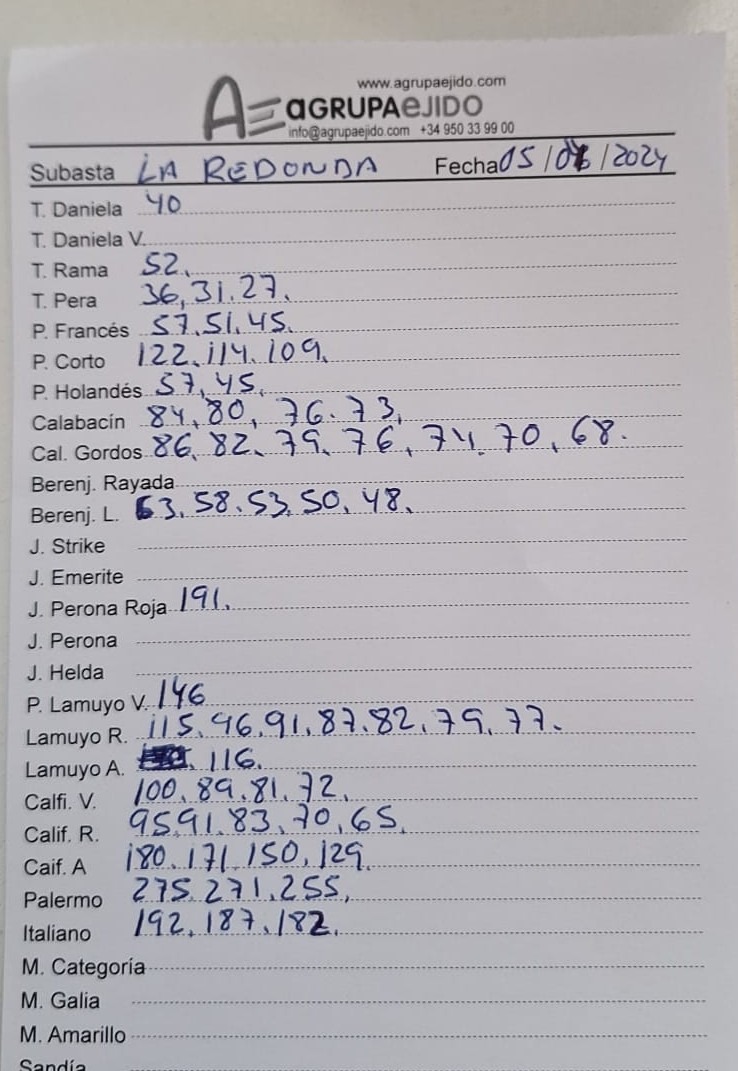 www.agrupaejido.com
AGRUPAEJIDO
info@agrupaejido.com +34 950 33 99 00
Subasta LA REDONDA Fecha 05/ /2024
T. Daniela 40
T. Daniela V.
T. Rama 52.
T. Pera 36, 31. 27.
P. Francés 57. 51. 45.
P. Corto 122. 114. 109.
P. Holandés 57, 45.
Calabacín 84, 80, 76. 73.
Cal. Gordos 86, 82, 79, 76, 74. 70, 68.
Berenj. Rayada
Berenj. L. 63. 58. 53. 50. 48.
J. Strike
J. Emerite
J. Perona Roja 191.
J. Perona
J. Helda
P. Lamuyo V. 146
Lamuyo R. 115. 96. 91. 87. 82. 79. 77.
Lamuyo A. 116.
Calfi. V. 100. 89. 81. 72.
Calif. R. 95 91. 83. 70, 65.
Caif. A 180. 171. 150, 129
Palermo 275. 271. 255,
Italiano 192. 187. 182.
M. Categoría
M. Galia
M. Amarillo
Sandía